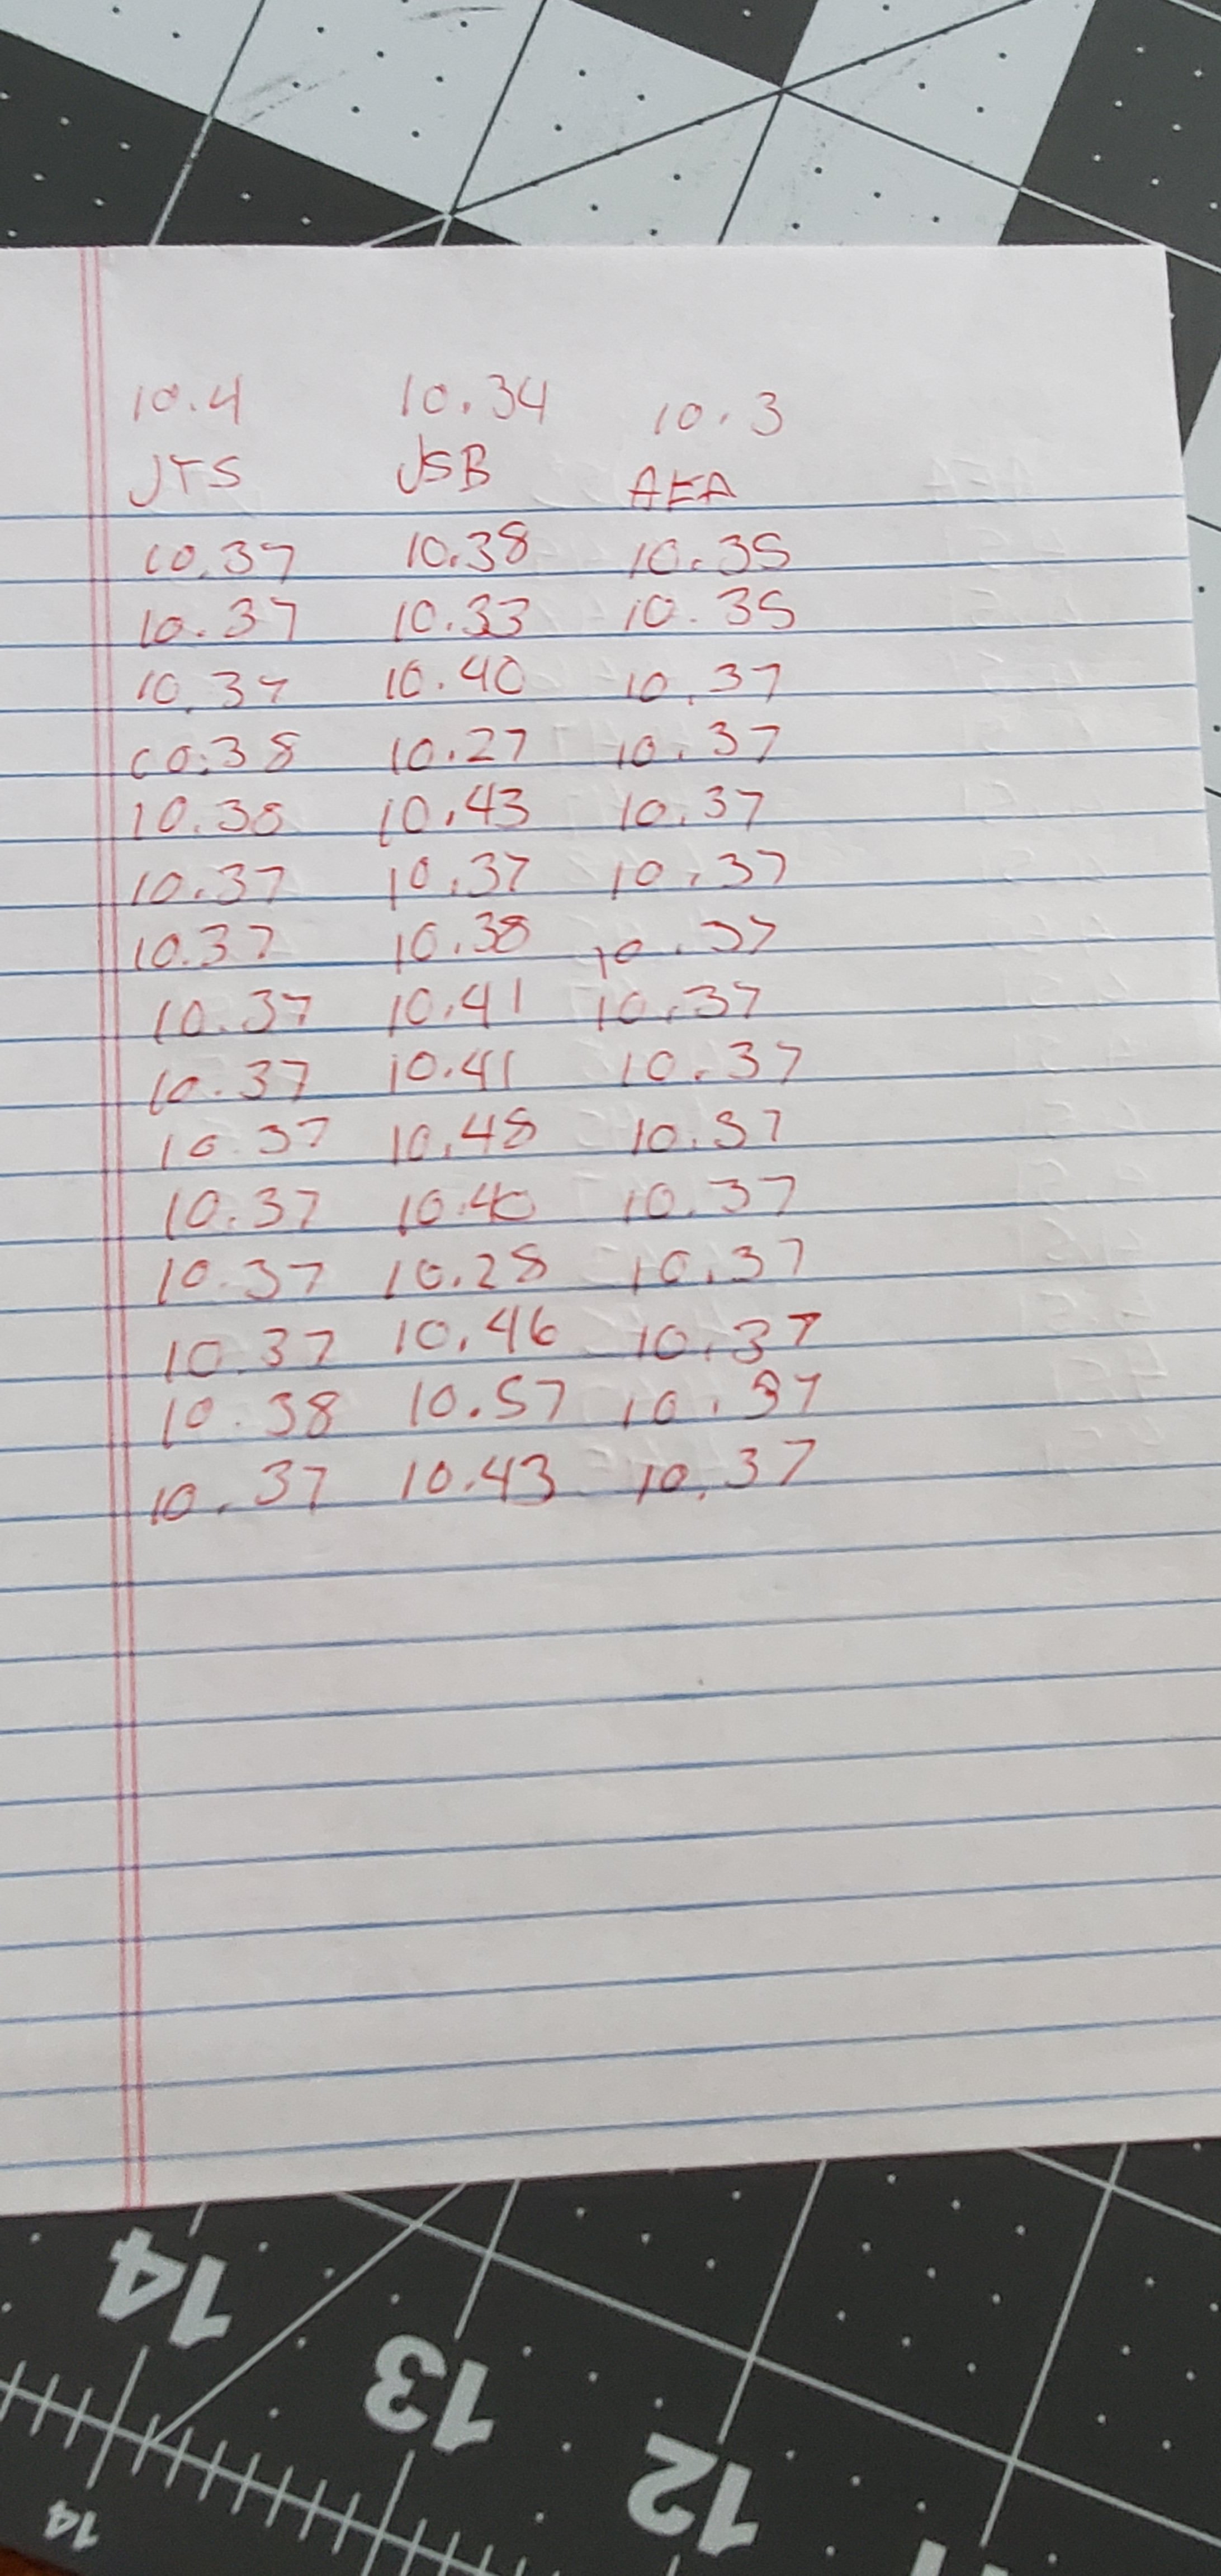 10.4 10.34 10.3
JTS JSB AEA
10.37 10.38 10.35
10.37 10.33 10.35
10.37 10.40 10.37
10.38 10.27 10.37
10.38 10.43 10.37
10.37 10.37 10.37
10.37 10.38 10.37
10.37 10.41 10.37
10.37 10.41 10.37
10.37 10.48 10.37
10.37 10.40 10.37
10.37 10.28 10.37
10.37 10.46 10.37
10.38 10.57 10.37
10.37 10.43 10.37
14 13 12
14